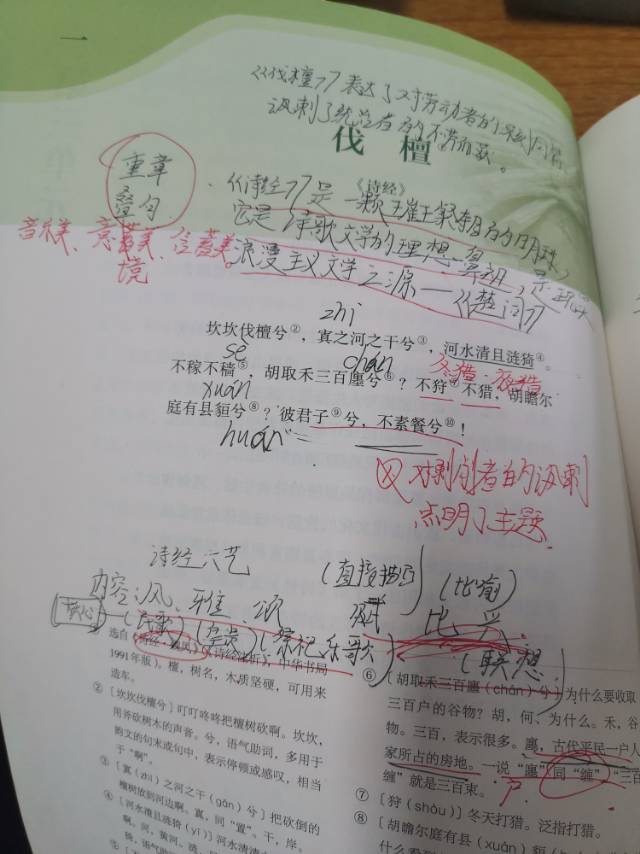 一
《伐檀》表达了对劳动者的深刻同情,
讽刺了统治者的不劳而获。
伐 檀
《诗经》
重章
叠句
音乐美、意蕴美、
境
《诗经》是一颗璀璨夺目的明珠,
它是诗歌文学的理想鼻祖,是
浪漫主义文学之源—《楚词》
zhi
坎坎伐檀兮②,寘之河之干兮③,河水清且涟猗④。
sè
chán
冬猎 夜猎
不稼不穑⑤,胡取禾三百廛兮⑥?不狩⑦不猎,胡瞻尔
xuán
庭有县貆兮⑧?彼君子⑨兮,不素餐兮⑩!
huán
对剥削者的讽刺
点明了主题
诗经六艺
(直接描写)
(比喻)
内容:风、雅、颂
赋 比 兴
核心
(民歌)
(祭祀乐歌)
(联想)
选自《诗经·魏风》(《诗经注析》,中华书局
1991年版)。檀,树名,木质坚硬,可用来
造车。
②〔坎坎伐檀兮〕叮叮咚咚把檀树砍啊。坎坎,
用斧砍树木的声音。兮,语气助词,多用于
韵文的句末或句中,表示停顿或感叹,相当
于“啊”。
③〔寘(zhì)之河之干(gān)兮〕把砍倒的
檀树放到河边啊。寘,同“置”。干,岸。
④〔河水清且涟猗(yī)〕河水清清
啊。河,黄河。涟,
猗,语气助
⑤〔不
⑥〔胡取禾三百廛(chán)兮〕为什么要收取
三百户的谷物?胡,何、为什么。禾,谷
物。三百,表示很多。廛,古代平民一户人
家所占的房地。一说“廛”同“缠”,“三百
缠”就是三百束。
⑦〔狩(shòu)〕冬天打猎。泛指打猎。
⑧〔胡瞻尔庭有县(xuán)貆(huán
什么看到